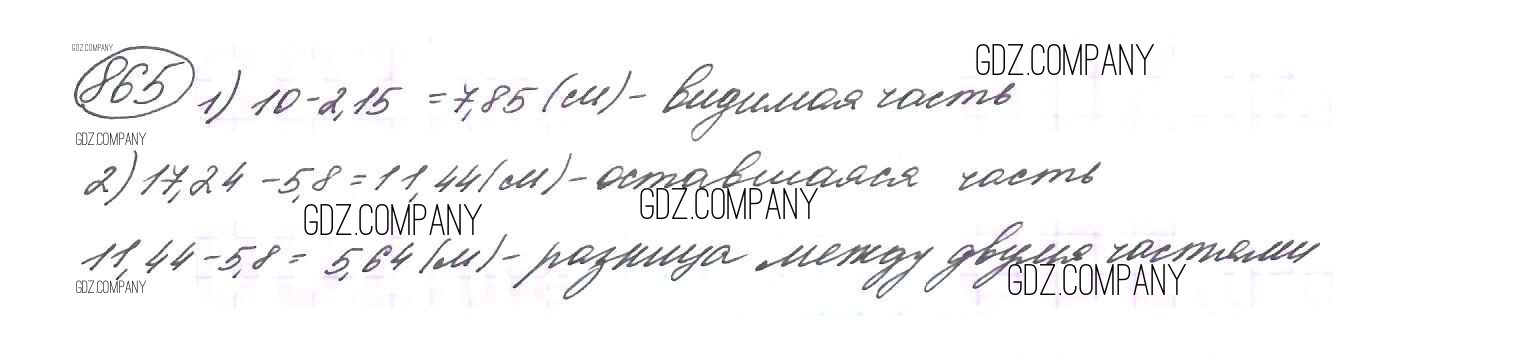 GDZ.COMPANY
865 1) 10-2,15 = 7,85 (м) - видимая часть
GDZ.COMPANY
GDZ.COMPANY
2) 17,24 - 5,8 = 11,44 (м) - оставшаяся часть
GDZ.COMPANY
GDZ.COMPANY
11,44 - 5,8 = 5,64 (м) - разница между двумя частями
GDZ.COMPANY
GDZ.COMPANY